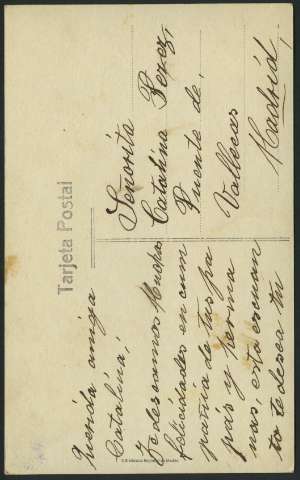 Tarjeta Postal
Querida amiga
Catalina,
Te deseamos Muchas
felicidades en com
pañia de tus pa
pás y herma
nas, esto es cuan
to te desea tu
Señorita
Catalina Perez,
Puente de,
Vallecas
Madrid,